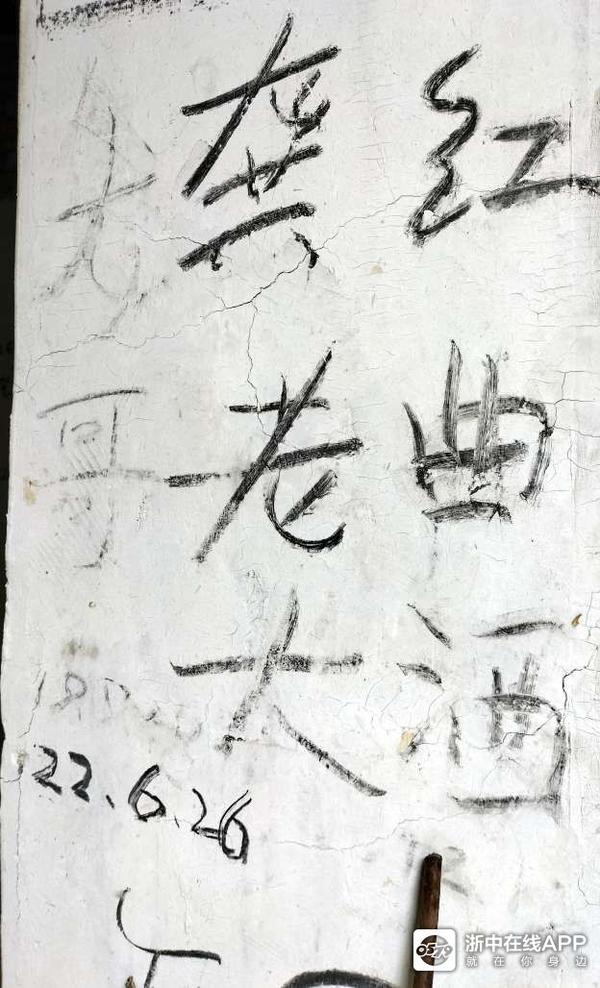 红曲酒
龚老大
哥
22.6.26
浙中在线APP
就在你身边